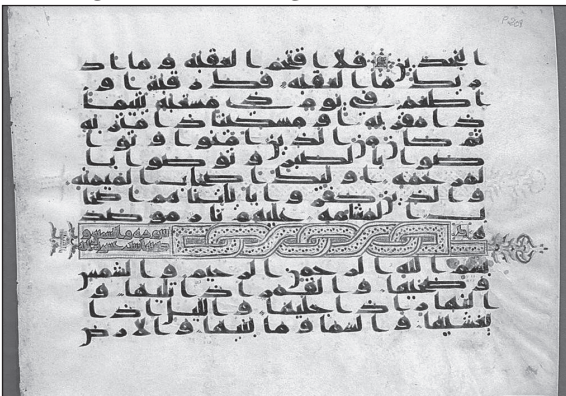 النجدين فلا اقتحم العقبة وما اد
ريك ما العقبة فك رقبة او
اطعم في يوم ذي مسغبة يتيما
ذا مقربة او مسكينا ذا متربة
ثم كان من الذين امنوا وتوا
صوا بالصبر وتوصوا با
لمرحمة اوليك اصحاب الميمنة
والذين كفروا باياتنا هم اصحا
ب المشامة عليهم نار موصد
ة
سورة والشمس و
بسم الله الرحمن الرحيم والشمس
وضحيها والقمر اذا تليها و
النهار اذا جليها والليل اذا
يغشيها والسما وما بنيها والارض